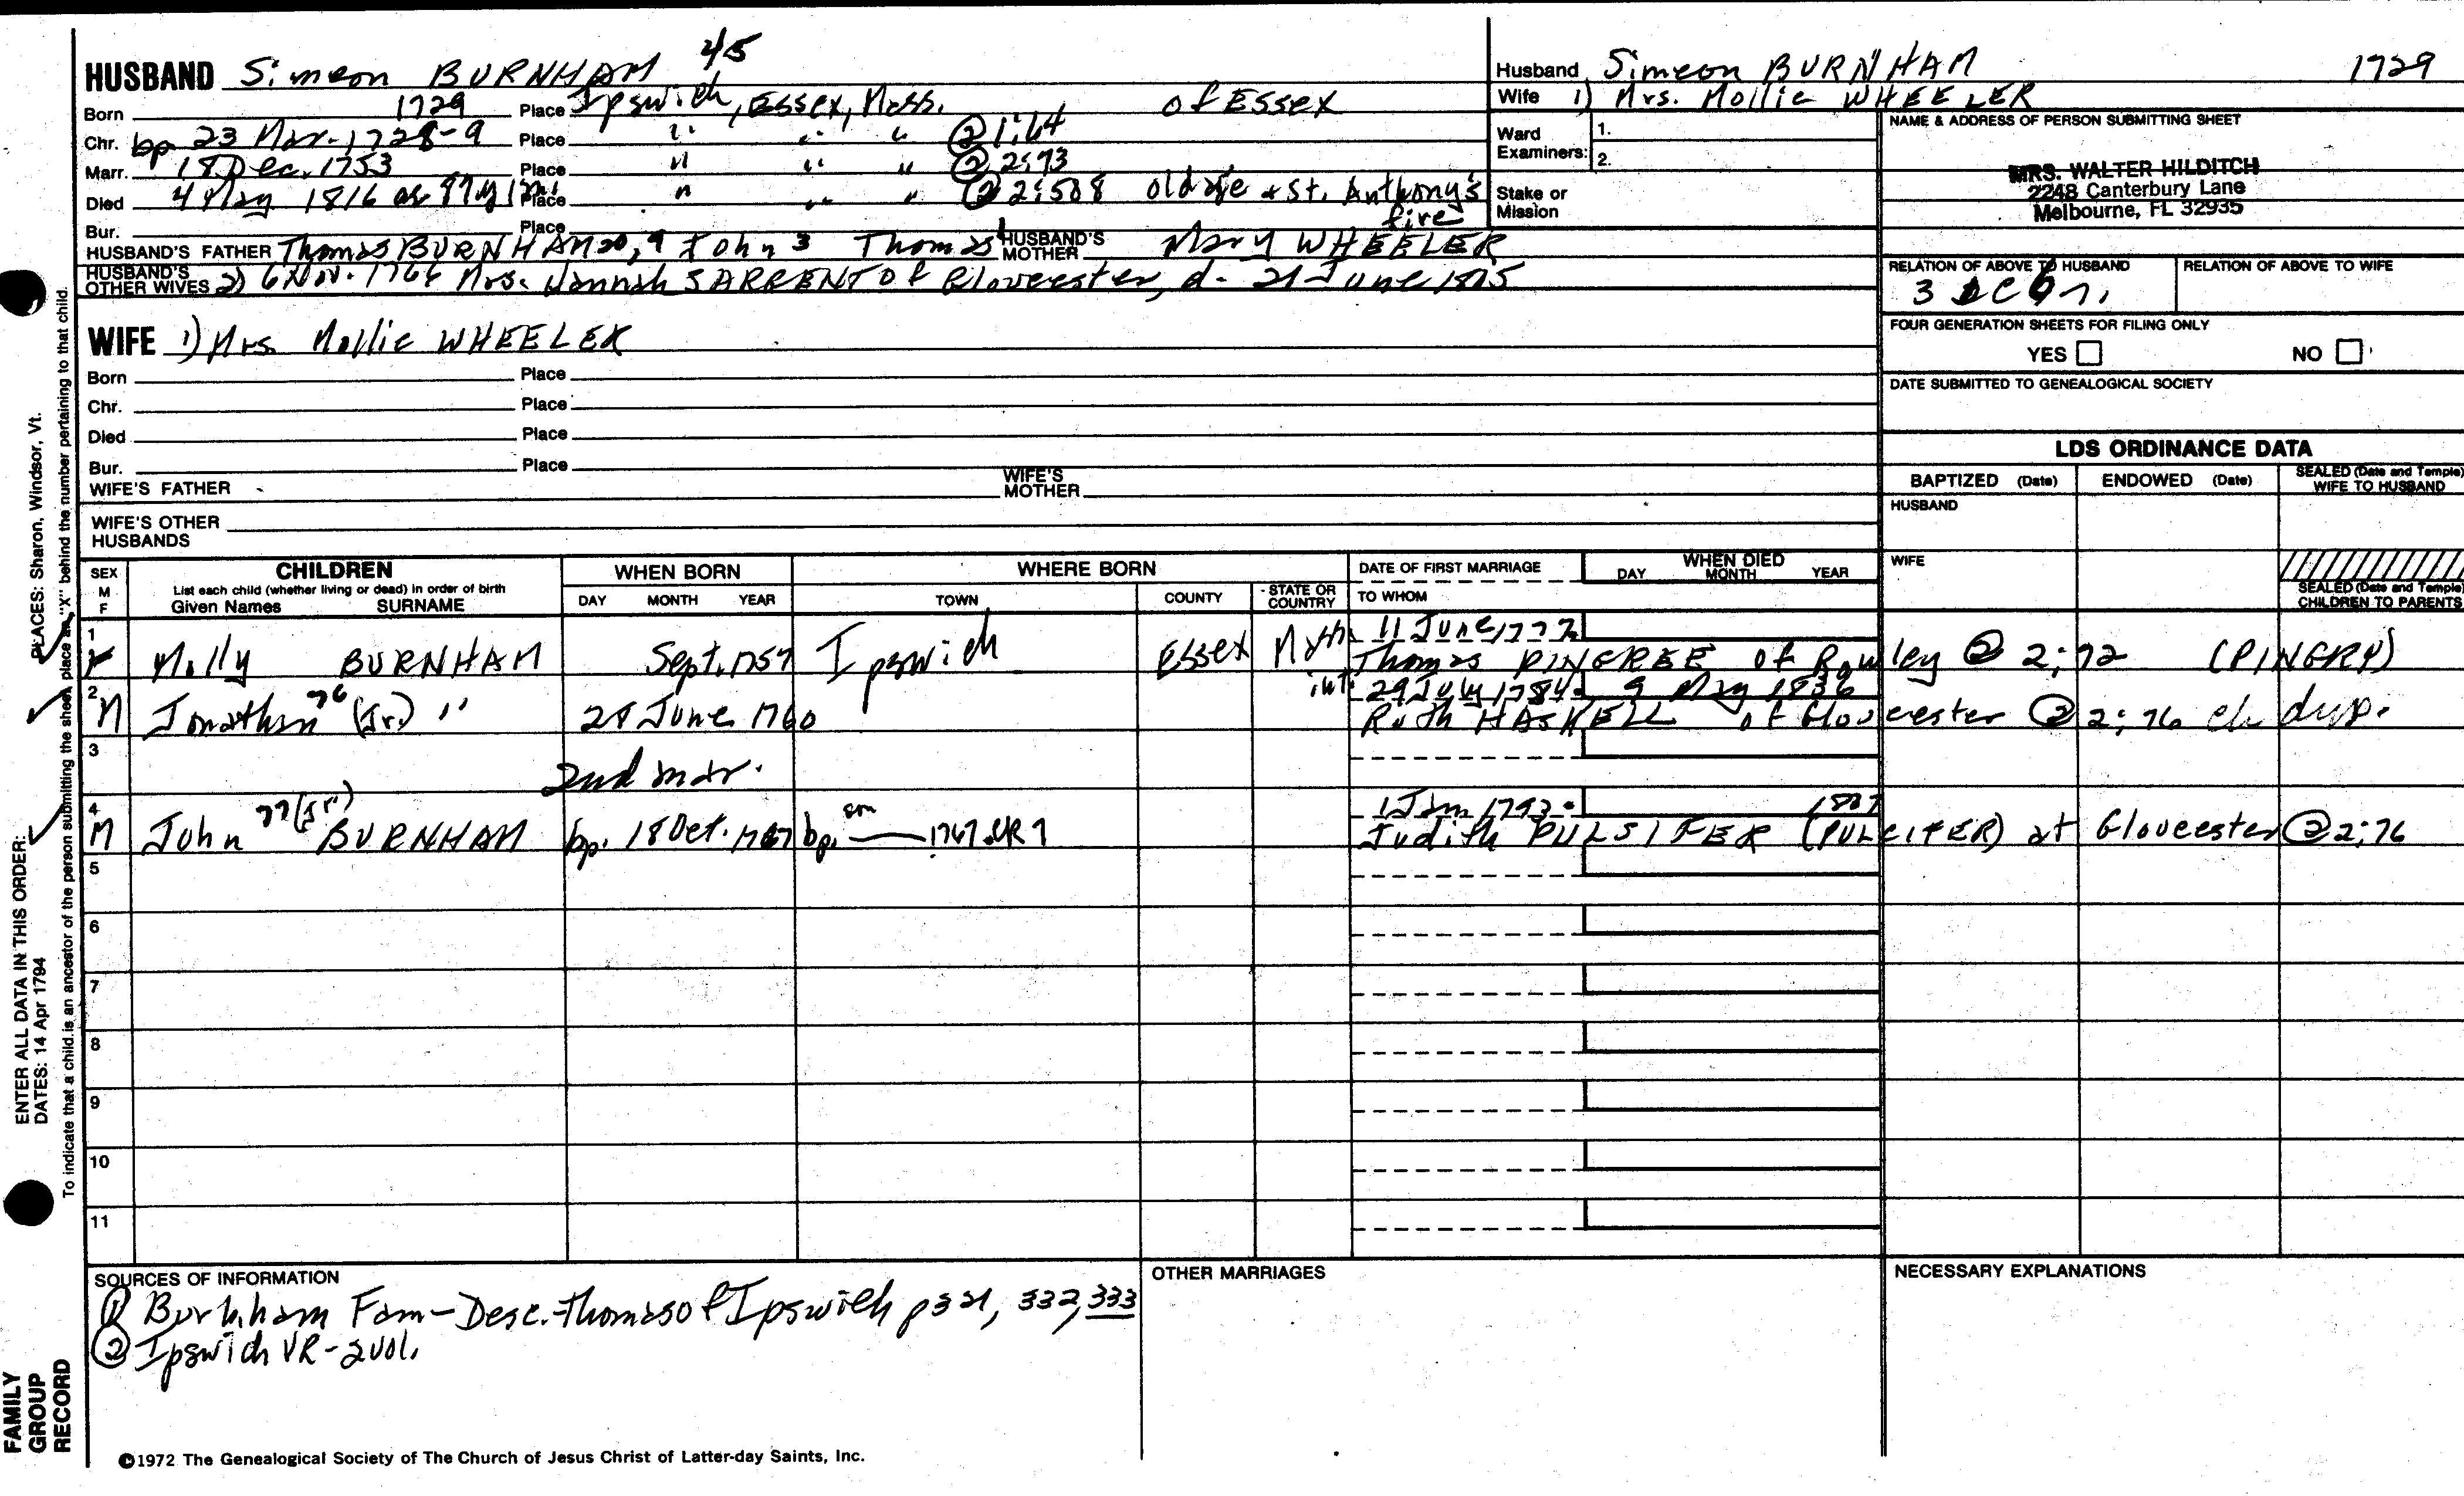 45
HUSBAND Simeon BURNHAM
Born 1729 Place Ipswich, Essex, Mass. of Essex
Chr. bp 23 Mar. 1728-9 Place " " " ② 1:64
Marr. 18 Dec. 1753 Place " " " ② 2:73
Died 4 May 1816 ae 87y Place " " " ② 2:508 old age & St. Anthony's fire
Bur. Place
HUSBAND'S FATHER Thomas BURNHAM 20, 9 John 3 Thomas 1 HUSBAND'S MOTHER Mary WHEELER
HUSBAND'S OTHER WIVES 2) 6 Nov. 1766 Mrs. Hannah SARGENT of Gloucester, d. 21 June 1815
WIFE 1) Mrs. Mollie WHEELER
Born Place
Chr. Place
Died Place
Bur. Place
WIFE'S FATHER WIFE'S MOTHER
WIFE'S OTHER HUSBANDS
Husband Simeon BURNHAM 1729
Wife 1) Mrs. Mollie WHEELER
Ward Examiners: 1.
2.
Stake or Mission
NAME & ADDRESS OF PERSON SUBMITTING SHEET
MRS. WALTER HILDITCH
2248 Canterbury Lane
Melbourne, FL 32935
RELATION OF ABOVE TO HUSBAND RELATION OF ABOVE TO WIFE
3
FOUR GENERATION SHEETS FOR FILING ONLY
YES NO
DATE SUBMITTED TO GENEALOGICAL SOCIETY
LDS ORDINANCE DATA
BAPTIZED (Date) ENDOWED (Date) SEALED (Date and Temple) WIFE TO HUSBAND
HUSBAND
WIFE
SEALED (Date and Temple) CHILDREN TO PARENTS
SEX M F CHILDREN WHEN BORN WHERE BORN DATE OF FIRST MARRIAGE WHEN DIED
List each child (whether living or dead) in order of birth
Given Names SURNAME DAY MONTH YEAR TOWN COUNTY STATE OR COUNTRY TO WHOM DAY MONTH YEAR
1 11 June 1777
F Molly BURNHAM Sept. 1757 Ipswich Essex Thomas PINGREE of Rowley ② 2:72 (PINGRY)
2 int. 29 July 1784 9 May 1836
M Jonathan 76 (Jr.) " 28 June 1760 Ruth HASKELL of Gloucester ② 2:76 ch dup.
3
2nd mar.
4 1 Jan 1793
M John 77 (Jr") BURNHAM bp. 18 Oct. 1767 bp. son 1767 Judith PULSIFER (PULCIFER) at Gloucester ② 2:76
5
6
7
8
9
10
11
SOURCES OF INFORMATION
① Burnham Fam-Desc. Thomas of Ipswich p321, 332, 333
② Ipswich VR-2vol.
OTHER MARRIAGES
NECESSARY EXPLANATIONS
©1972 The Genealogical Society of The Church of Jesus Christ of Latter-day Saints, Inc.
FAMILY GROUP RECORD
ENTER ALL DATA IN THIS ORDER:
DATES: 14 Apr 1794
PLACES: Sharon, Windsor, Vt.
To indicate that a child is an ancestor of the person submitting the sheet, place an "X" behind the number pertaining to that child.